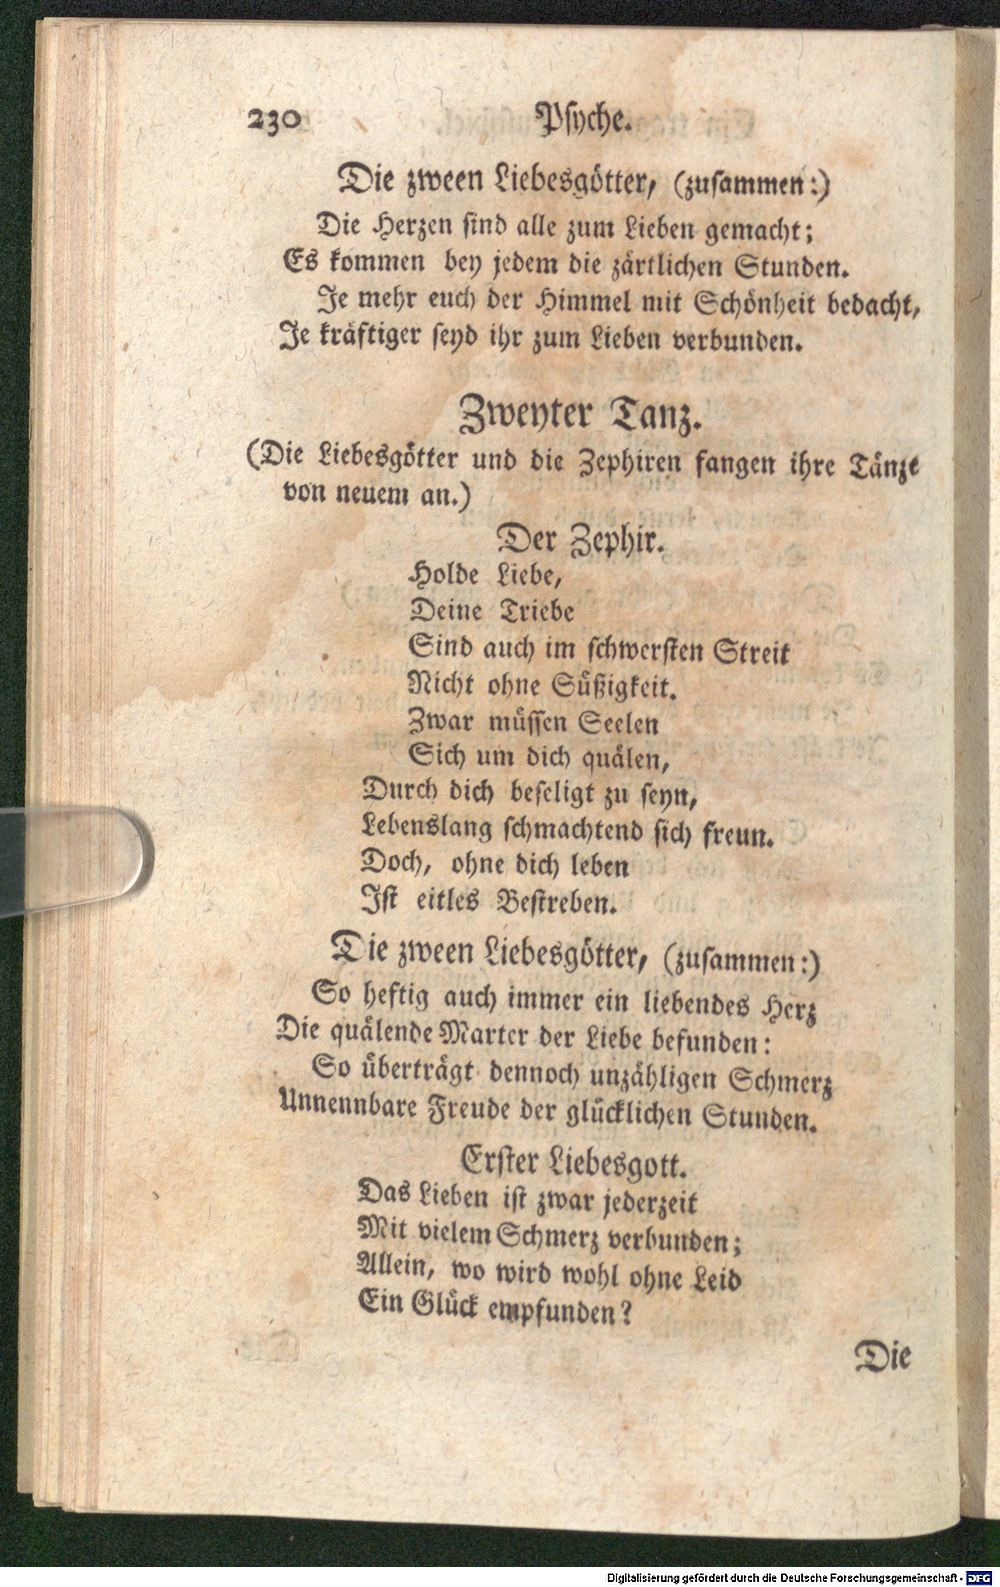 230 Psyche.
Die zween Liebesgötter, (zusammen:)
Die Herzen sind alle zum Lieben gemacht;
Es kommen bey jedem die zärtlichen Stunden.
Je mehr euch der Himmel mit Schönheit bedacht,
Je kräftiger seyd ihr zum Lieben verbunden.
Zweyter Tanz.
(Die Liebesgötter und die Zephiren fangen ihre Tänze
von neuem an.)
Der Zephir.
Holde Liebe,
Deine Triebe
Sind auch im schwersten Streit
Nicht ohne Süßigkeit.
Zwar müssen Seelen
Sich um dich quälen,
Durch dich beseligt zu seyn,
Lebenslang schmachtend sich freun.
Doch, ohne dich leben
Ist eitles Bestreben.
Die zween Liebesgötter, (zusammen:)
So heftig auch immer ein liebendes Herz
Die quälende Marter der Liebe befunden:
So überträgt dennoch unzähligen Schmerz
Unnennbare Freude der glücklichen Stunden.
Erster Liebesgott.
Das Lieben ist zwar jederzeit
Mit vielem Schmerz verbunden;
Allein, wo wird wohl ohne Leid
Ein Glück empfunden?
Die
Digitalisierung gefördert durch die Deutsche Forschungsgemeinschaft - DFG